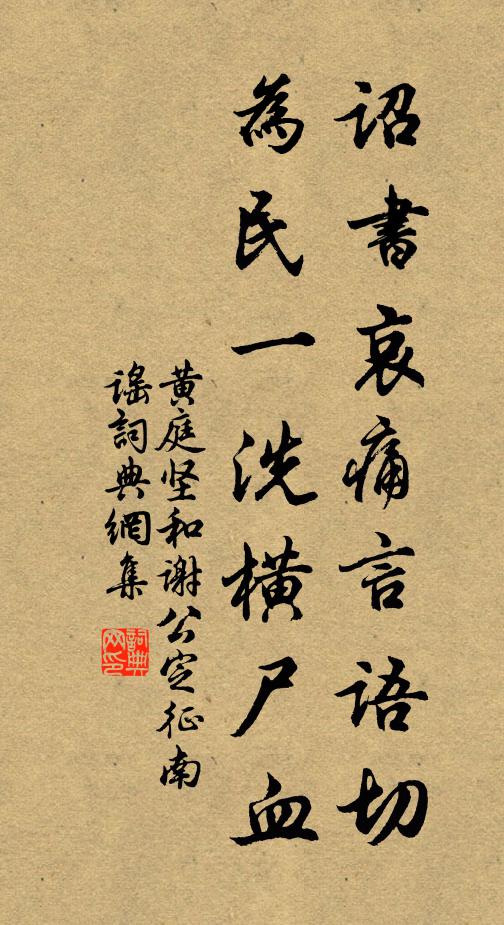 詔書哀痛言語切
為民一洗橫尸血
黄庭坚和谢公定征南
謠詞典網集
詞典网印